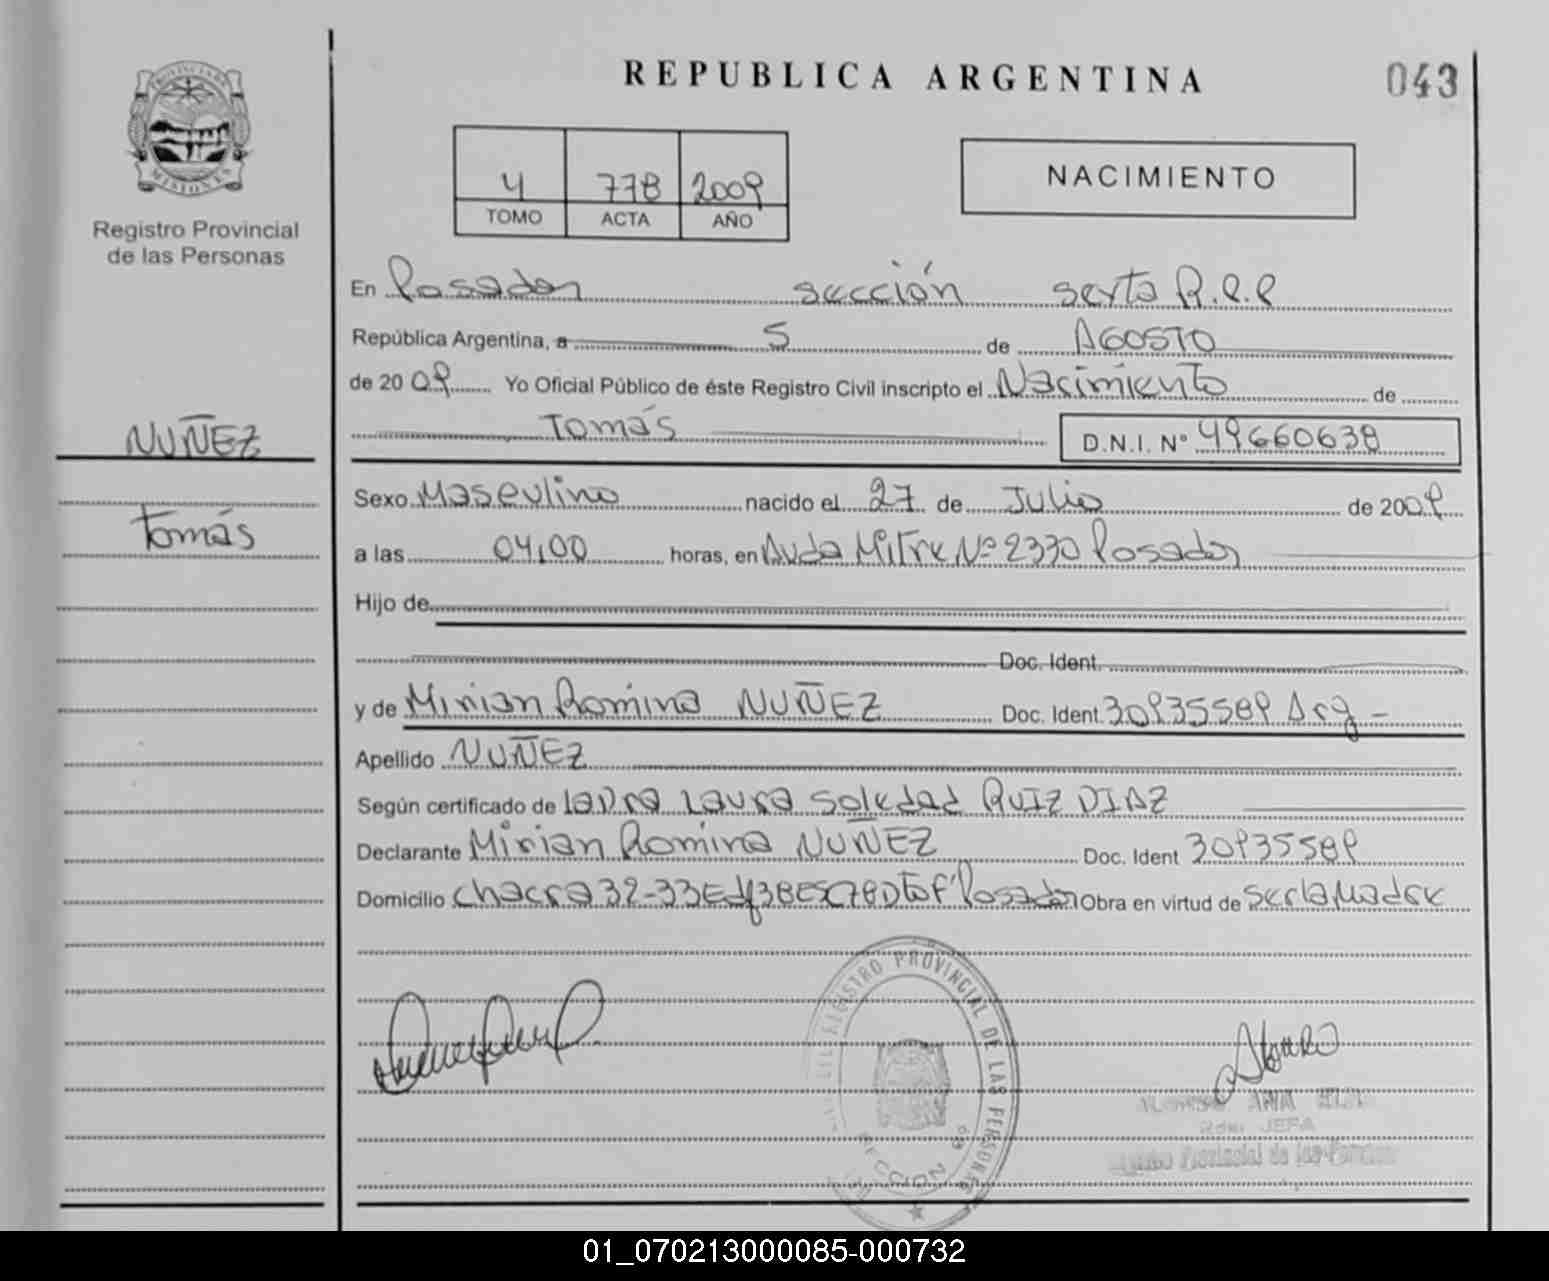 REPUBLICA ARGENTINA
043
PROVINCIA DE
MISIONES
Registro Provincial
de las Personas
4 778 2009
TOMO ACTA AÑO
NACIMIENTO
En Posadas sección sexta R.P.P
República Argentina, a 5 de AGOSTO
de 2009 Yo Oficial Público de éste Registro Civil inscripto el Nacimiento de
Tomás D.N.I. Nº 49660638
NUÑEZ
Tomás
Sexo Masculino nacido el 27 de Julio de 2009
a las 04,00 horas, en Avda Mitre Nº 2330 Posadas
Hijo de
Doc. Ident.
y de Mirian Romina NUÑEZ Doc. Ident. 30935589 Arg -
Apellido NUÑEZ
Según certificado de Laura Soledad RUIZ DIAZ
Declarante Mirian Romina NUÑEZ Doc. Ident 30935589
Domicilio Chacra 32-33 Edf 38 Posadas Obra en virtud de ser la Madre
REGISTRO PROVINCIAL DE LAS PERSONAS
SECCION 6ª
ANA
JEFA
Provincial de las Personas
01_070213000085-000732